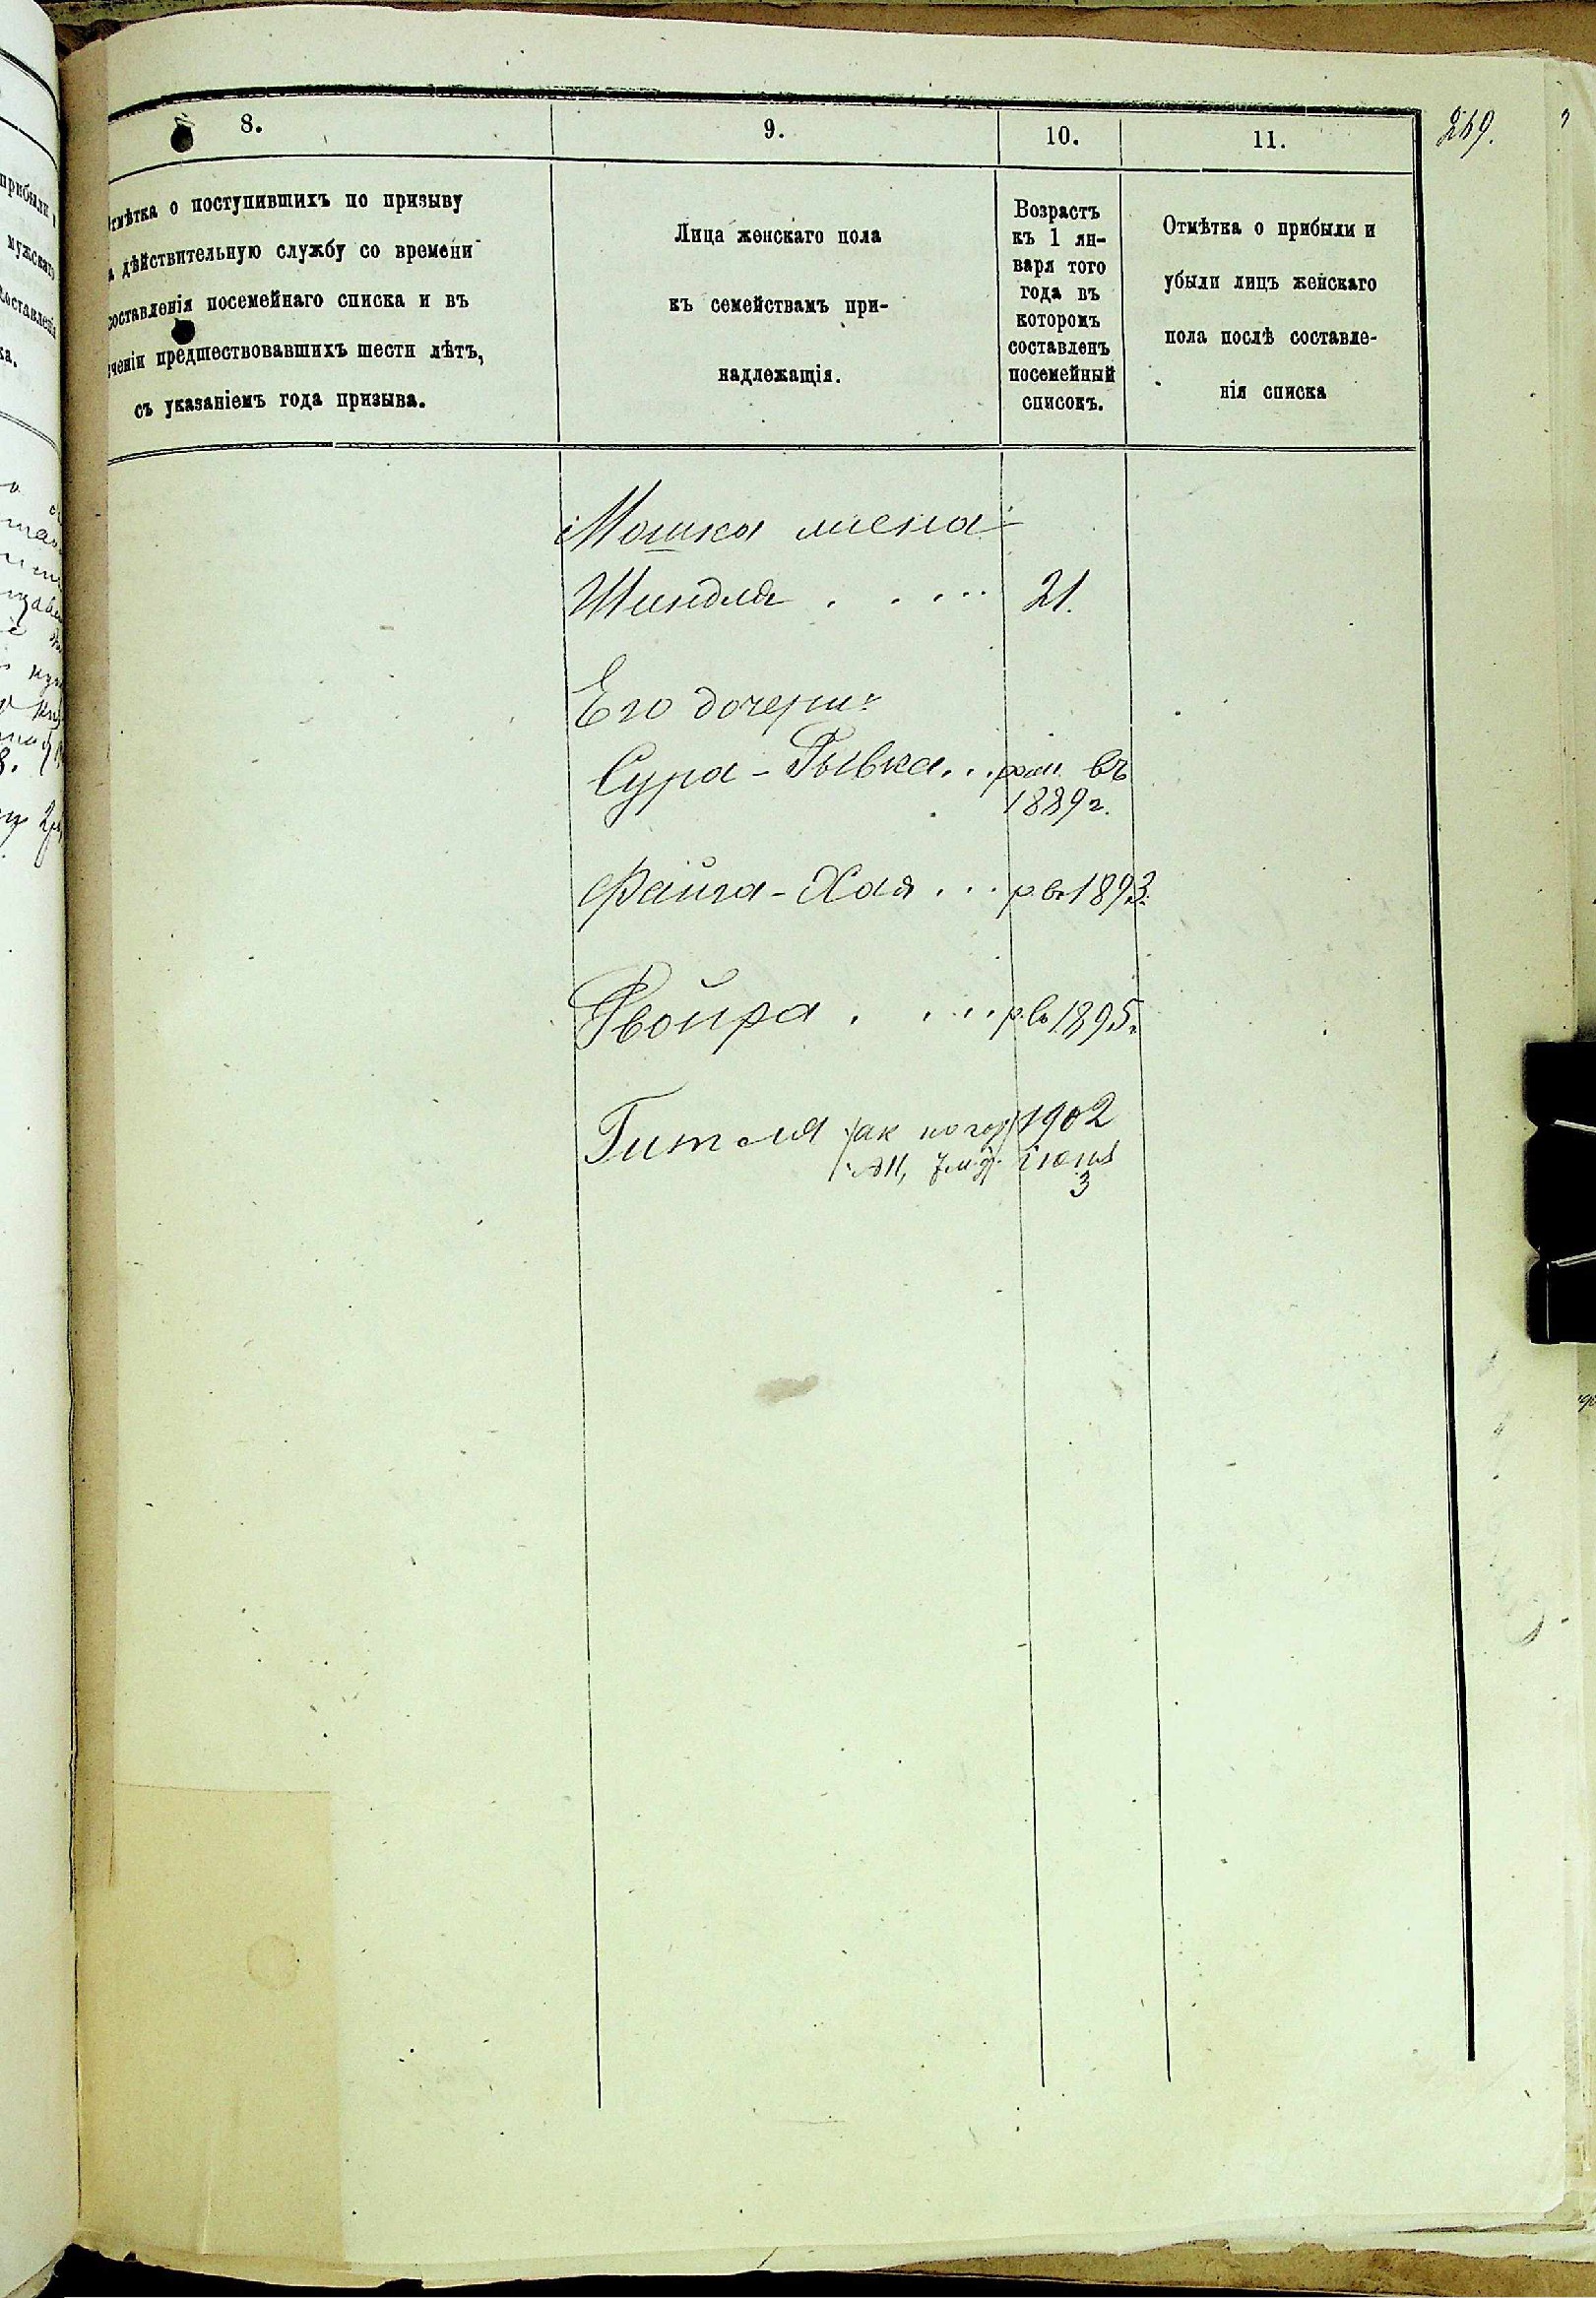 8.
9.
10.
11.
249.
Отмѣтка о поступившихъ по призыву
дѣйствительную службу со времени
составленія посемейнаго списка и въ
теченіи предшествовавшихъ шести лѣтъ,
съ указаніемъ года призыва.
Лица женскаго пола
къ семействамъ при-
надлежащія.
Возрастъ
къ 1 ян-
варя того
года въ
которомъ
составленъ
посемейный
списокъ.
Отмѣтка о прибыли и
убыли лицъ женскаго
пола послѣ составле-
нія списка
Мошка жена
Шиндля . . . . . 21.
Его дочери:
Сура-Рывка. . . рож. въ
1889 г.
Файга-Хая . . . р. въ 1893.
Двойра . . . . р. въ 1895.
Гитля 1902
іюня
3